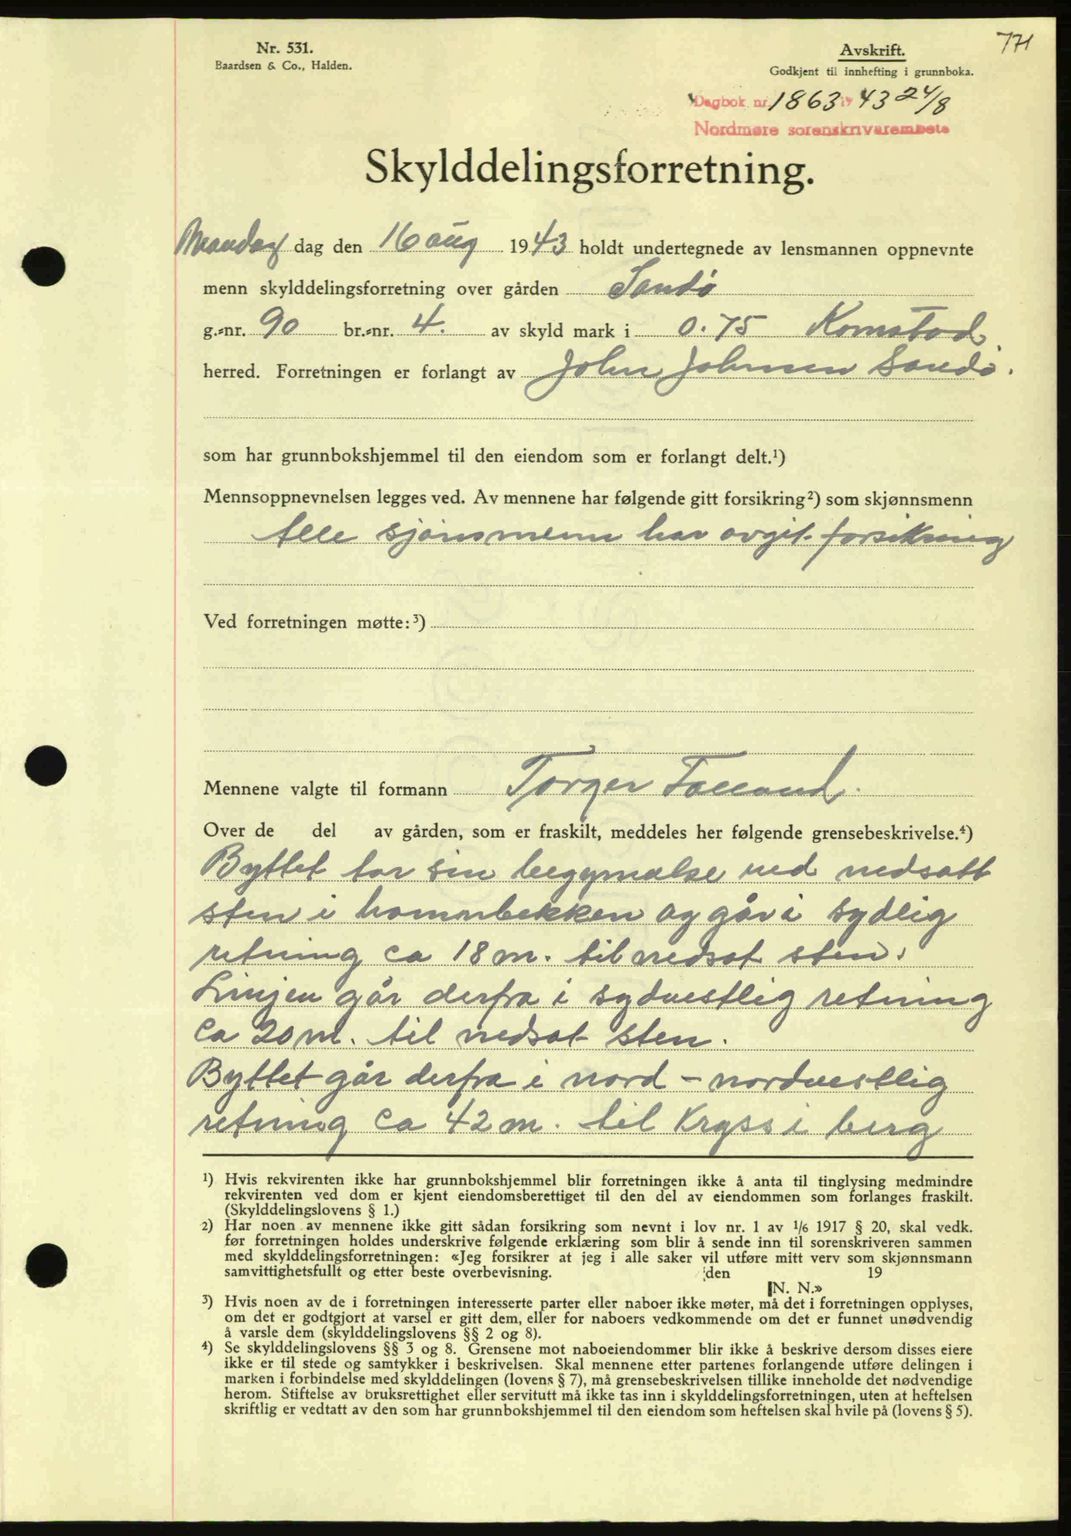 771
Nr. 531.
Baardsen & Co., Halden.
Avskrift.
Godkjent til innhefting i grunnboka.
Dagbok nr. 1863 19 43 24/8
Nordmøre sorenskriverembete
Skylddelingsforretning.
Mandag dag den 16 aug 1943 holdt undertegnede av lensmannen oppnevnte
menn skylddelingsforretning over gården Sandø
g.-nr. 90 br.-nr. 4. av skyld mark i 0.75 Kornstad
herred. Forretningen er forlangt av John Johnsen Sandø.
som har grunnbokshjemmel til den eiendom som er forlangt delt.¹)
Mennsoppnevnelsen legges ved. Av mennene har følgende gitt forsikring²) som skjønnsmenn
Alle sjønsmenn har avgit forsikring
Ved forretningen møtte:³)
Mennene valgte til formann Torger Folland.
Over de del av gården, som er fraskilt, meddeles her følgende grensebeskrivelse.⁴)
Byttet tar sin begynnelse ved nedsatt
sten i hammbekken og går i sydlig
retning ca 18 m. til nedsat sten.
Linjen går derfra i sydvestlig retning
ca 20 m. til nedsat sten.
Byttet går derfra i nord - nordvestlig
retning ca 42 m. til Kryss i berg
¹) Hvis rekvirenten ikke har grunnbokshjemmel blir forretningen ikke å anta til tinglysing medmindre
rekvirenten ved dom er kjent eiendomsberettiget til den del av eiendommen som forlanges fraskilt.
(Skylddelingslovens § 1.)
²) Har noen av mennene ikke gitt sådan forsikring som nevnt i lov nr. 1 av 1/6 1917 § 20, skal vedk.
før forretningen holdes underskrive følgende erklæring som blir å sende inn til sorenskriveren sammen
med skylddelingsforretningen: «Jeg forsikrer at jeg i alle saker vil utføre mitt verv som skjønnsmann
samvittighetsfullt og etter beste overbevisning. den 19
[N. N.»
³) Hvis noen av de i forretningen interesserte parter eller naboer ikke møter, må det i forretningen opplyses,
om det er godtgjort at varsel er gitt dem, eller for naboers vedkommende om det er funnet unødvendig
å varsle dem (skylddelingslovens §§ 2 og 8).
⁴) Se skylddelingslovens §§ 3 og 8. Grensene mot naboeiendommer blir ikke å beskrive dersom disses eiere
ikke er til stede og samtykker i beskrivelsen. Skal mennene etter partenes forlangende utføre delingen i
marken i forbindelse med skylddelingen (lovens § 7), må grensebeskrivelsen tillike inneholde det nødvendige
herom. Stiftelse av bruksrettighet eller servitutt må ikke tas inn i skylddelingsforretningen, uten at heftelsen
skriftlig er vedtatt av den som har grunnbokshjemmel til den eiendom som heftelsen skal hvile på (lovens § 5).